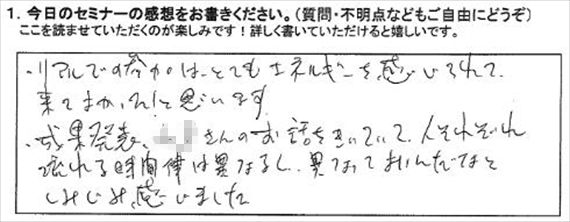 1. 今日のセミナーの感想をお書きください。（質問・不明点などもご自由にどうぞ）
ここを読ませていただくのが楽しみです！詳しく書いていただけると嬉しいです。
・リアルでの参加は、とてもエネルギーを感じられて、
来てよかった！と思います
・成果発表、さんのお話をきいていて、人それぞれ
流れる時間律は異なるし、異なっておいんだなと
しみじみ感じました